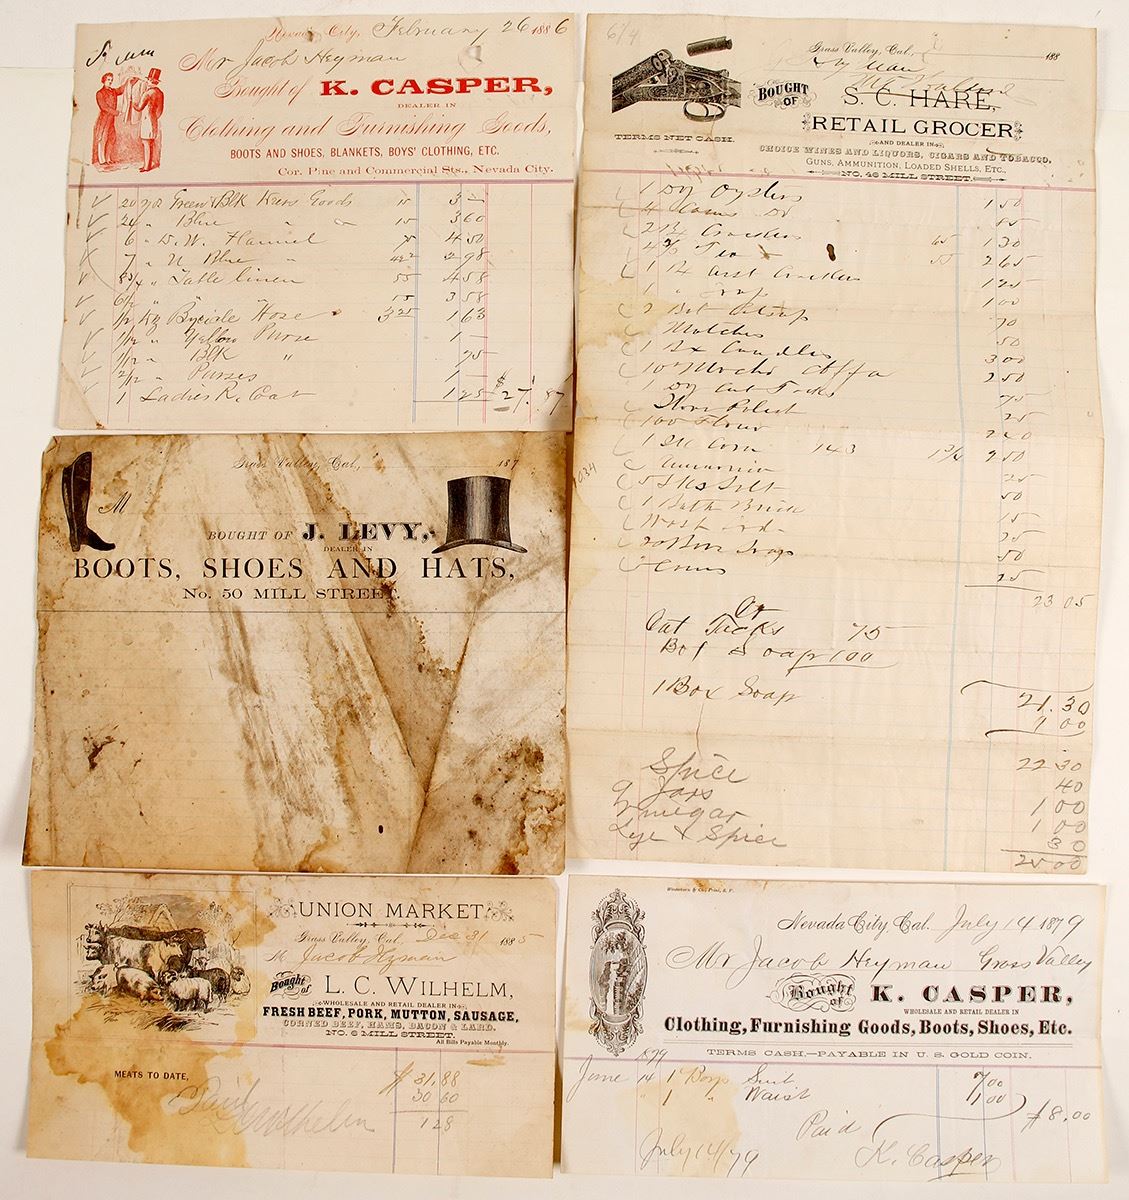 Nevada City, February 26 1886
Mr Jacob Heyman
Bought of K. CASPER,
DEALER IN
Clothing and Furnishing Goods,
BOOTS AND SHOES, BLANKETS, BOYS' CLOTHING, ETC.
Cor. Pine and Commercial Sts., Nevada City.
20 Green & Blk Goods 15 3 —
24 " Blue " " 15 3 60
6 " W. Flannel 75 4 50
7 " Blue " 42½ 2 98
" Table linen 55 4 58
3 58
1/2 Hose 3 25 1 63
1/12 " Yellow Purse 1 —
1/12 " Blk " 75
2/12 " Purses 1 —
1 Ladies R. Coat 1 25 $27.87
6/4
Grass Valley, Cal., 188
BOUGHT OF S. C. HARE,
RETAIL GROCER
AND DEALER IN
CHOICE WINES AND LIQUORS, CIGARS AND TOBACCO,
GUNS, AMMUNITION, LOADED SHELLS, ETC.,
NO. 46 MILL STREET.
TERMS NET CASH.
1 Dz Oysters 1 50
4 Cans 85
2 Bx Crackers 65 1 30
Tea 55 2 65
1 Crackers 1 25
1 " Soap 1 00
2 Bot Catsup 70
Matches 50
1 Bx Candles 3 00
10 " Mocha Coffa 2 50
1 Dz Cut Tacks 75
Stove Polish 25
100 Flour 2 40
1 Sk Corn 143 2 50
Ammonia 25
5 Sks Salt 50
1 Bath Brick 15
25
Soap 50
25
23 05
Cr
Cut Tacks 75
Box Soap 1 00
1 Box Soap 21.30
1 00
22 30
Spice 40
Jars 1 00
Vinegar 1 00
Lye & Spice 30
25 00
Grass Valley, Cal., 187
M
BOUGHT OF J. LEVY,
DEALER IN
BOOTS, SHOES AND HATS,
No. 50 MILL STREET.
UNION MARKET
Grass Valley, Cal. Dec 31 1885
M Jacob Hyman
Bought of L. C. WILHELM,
WHOLESALE AND RETAIL DEALER IN
FRESH BEEF, PORK, MUTTON, SAUSAGE,
CORNED BEEF, HAMS, BACON & LARD.
NO. 6 MILL STREET.
All Bills Payable Monthly.
MEATS TO DATE, $ 31.88
30 60
1 28
Paid
Wilhelm
Nevada City, Cal. July 14 1879
Mr Jacob Heyman Grass Valley
Bought of K. CASPER,
WHOLESALE AND RETAIL DEALER IN
Clothing, Furnishing Goods, Boots, Shoes, Etc.
TERMS CASH.—PAYABLE IN U. S. GOLD COIN.
1879
June 14 1 Boys Suit 7 00
" 1 " Waist 1 00 $8.00
Paid
July 14/79 K. Casper